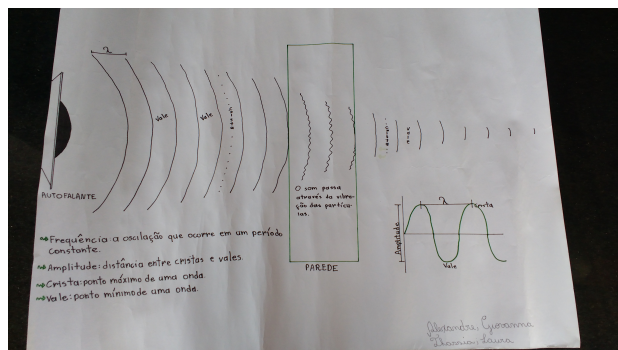 λ
Vale
Vale
Crista
AUTOFALANTE
O som passa
através da vibra-
ção das partícu-
las.
PAREDE
λ
Crista
Amplitude
Vale
→Frequência: a oscilação que ocorre em um período
constante.
→Amplitude: distância entre cristas e vales.
→Crista: ponto máximo de uma onda.
→Vale: ponto mínimo de uma onda.
Alexandre, Giovanna
Laura